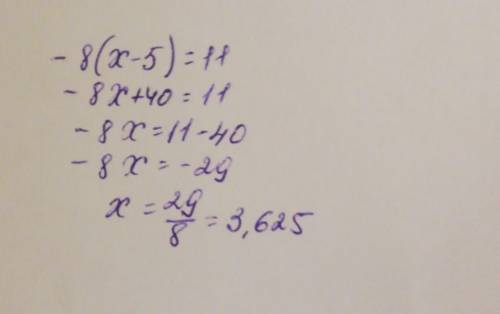 - 8(x-5)=11
- 8x+40=11
- 8x=11-40
- 8x=-29
x = 29/8 = 3,625